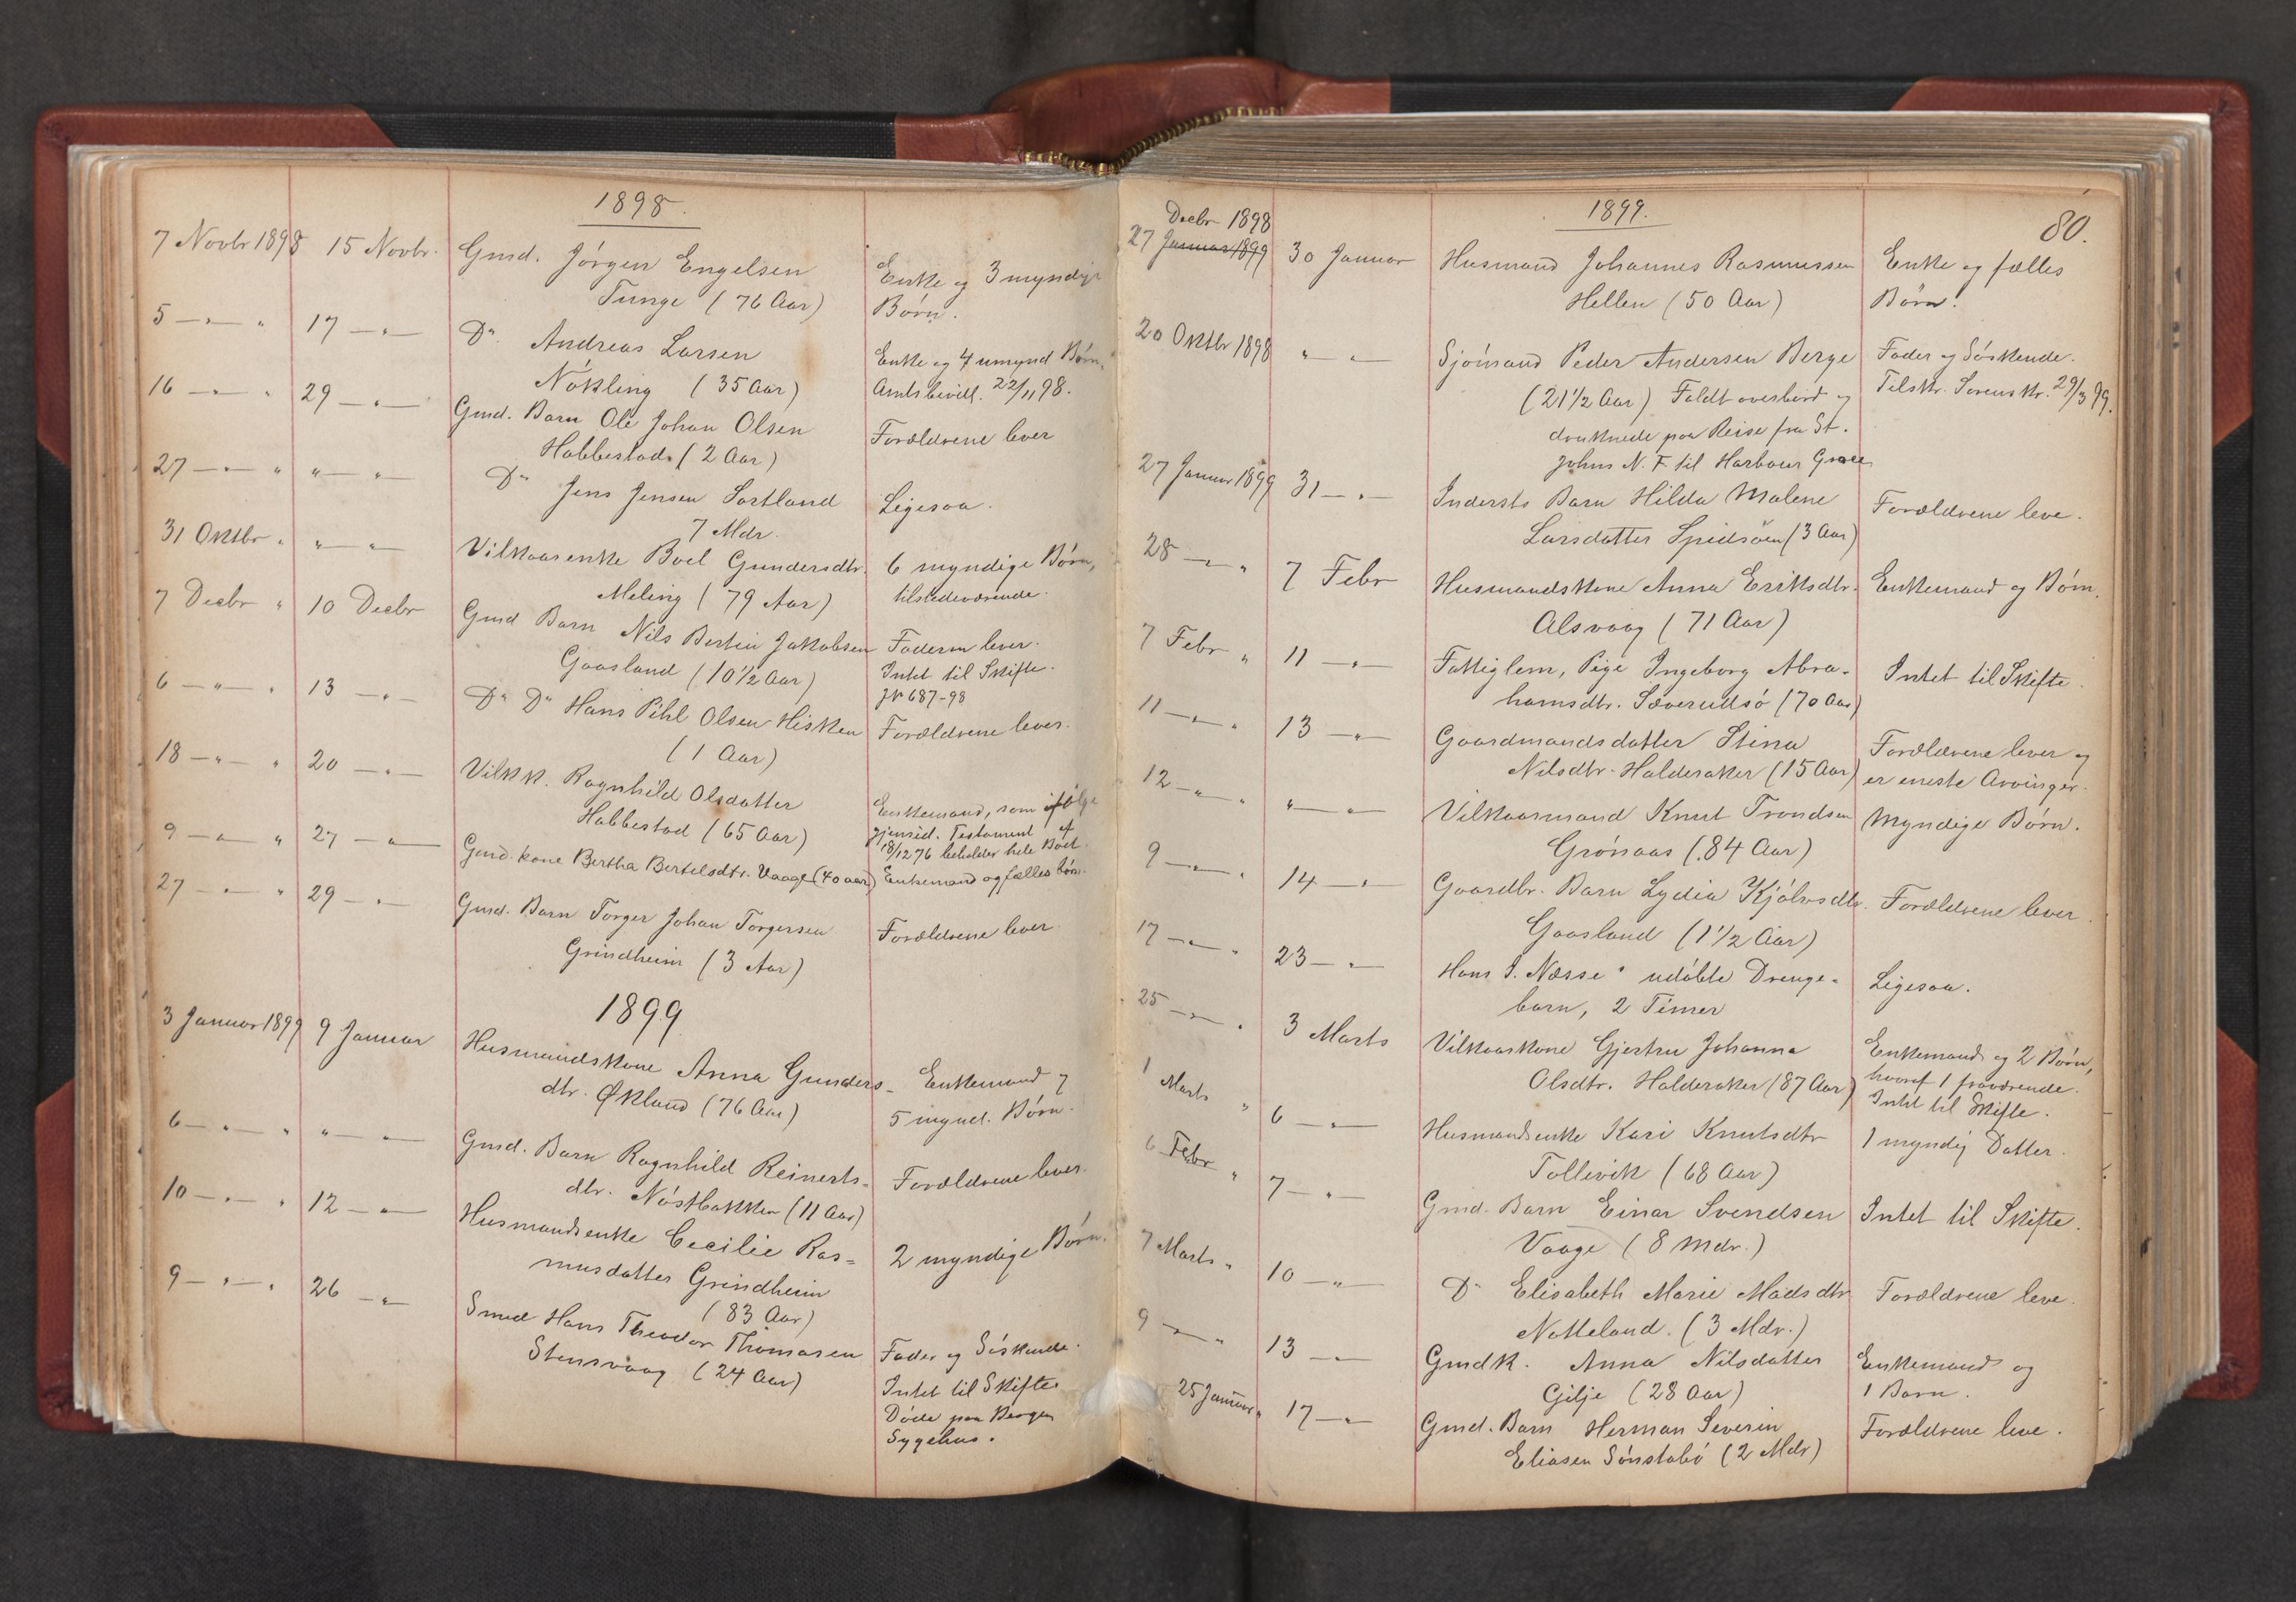 1898.
7 Novbr 1898 15 Novbr. Gmd. Jörgen Engelsen Enke og 3 myndige
Tunge (76 Aar) Börn.
5 — " — " 17 — " — Do Andreas Larsen Enke og 4 umynd Börn,
Nökling (35 Aar) Amtsbevill. 22/11 98.
16 — " — " 29 — " — Gmd. Barn Ole Johan Olsen Forældrene lever
Habbestad. (2 Aar)
27 — " — " " — " Do Jens Jensen Sortland Ligesaa.
7 Mdr.
31 Oktbr " " — " Vilkaarsenke Boel Gundersdtr. 6 myndige Börn,
Meling (79 Aar) tilstedeværende.
7 Decbr " 10 Decbr Gmd Barn Nils Bertin Jakobsen Faderen lever.
Gaasland (10 1/2 Aar) Intet til Skifte.
JN 687-98
6 — " — " 13 — " — Do Do Hans Pihl Olsen Hisken Forældrene lever.
(1 Aar)
18 — " — " 20 — " — Vilk k. Ragnhild Olsdatter Enkemand, som ifølge
Habbestad (65 Aar) gjensid. Testament af
18/12 76 beholder hele Boet.
9 — " — " 27 — " — Gmd. kone Bertha Bertelsdtr. Vaage (40 aar) Enkemand og fælles börn.
27 — " — " 29 — " — Gmd. Barn Torger Johan Torgersen Forældrene lever
Grindheim (3 Aar)
1899
3 Januar 1899 9 Januar Husmandskone Anna Gunders- Enkemand og
dtr. Økland (76 Aar) 5 mynd. Börn.
6 — " — " " — " Gmd. Barn Ragnhild Reinerts- Forældrene lever.
dtr. Nöstbakken (11 Aar)
10 — " — " 12 — " — Husmandsenke Cecilie Ras- 2 myndige Börn.
musdatter Grindheim
(83 Aar)
9 — " — " 26 — " — Smed Hans Theodor Thomasen Fader og Söskende.
Stensvaag (24 Aar) Intet til Skifte
Döde paa Bergen
Sygehus.
1899.
80.
Decbr 1898
27 Januar 1899 30 Januar Husmand Johannes Rasmussen Enke og fælles
Hellen (50 Aar) Börn.
20 Oktbr 1898 " — " Sjömand Peder Andersen Berge Fader og Söskende.
(21 1/2 Aar) Faldt overbord og Tilskr. Sorenskr. 29/3 99.
druknede paa Reise fra St.
Johns N. F. til Harbour Grace
27 Januar 1899 31 — " — Inderste Barn Hilda Malene Forældrene leve.
Larsdatter Spidsöen (3 Aar)
28 — " — " 7 Febr Husmandskone Anna Eriksdtr. Enkemand og Börn.
Alsvaag (71 Aar)
7 Febr " 11 — " — Fattiglem, Pige Ingeborg Abra- Intet til Skifte.
hamsdtr. Sæverudsö (70 Aar)
11 — " — " 13 — " — Gaardmandsdatter Stina Forældrene lever og
Nilsdtr. Halderaker (15 Aar) er eneste Arvinger.
12 — " — " " — " Vilkaarmand Knut Trondsen Myndige Börn.
Grönaas (84 Aar)
9 — " — " 14 — " — Gaardbr. Barn Lydia Kjölvsdtr. Forældrene lever.
Gaasland (1 1/2 Aar)
17 — " — " 23 — " — Hans J. Næsse's udöbte Drenge- Ligesaa.
barn, 2 Timer
25 — " — " 3 Marts Vilkaarskone Gjertru Johanna Enkemand og 2 Börn,
Olsdtr. Halderaker (87 Aar) hvoraf 1 fraværende.
Intet til Skifte.
1 Marts " 6 — " — Husmandsenke Kari Knutsdtr 1 myndig Datter.
Tollevik (68 Aar)
6 Febr " 7 — " — Gmd. Barn Einar Svendsen Intet til Skifte.
Vaage (8 Mdr.)
7 Marts " 10 — " — Do Elisabeth Marie Madsdtr Forældrene leve.
Natteland. (3 Mdr.)
9 — " — " 13 — " — Gmdk. Anna Nilsdatter Enkemand og
Gilje (28 Aar) 1 Barn.
25 Januar " 17 — " — Gmd. Barn Herman Severin Forældrene leve.
Eliasen Sönstabö (2 Mdr)